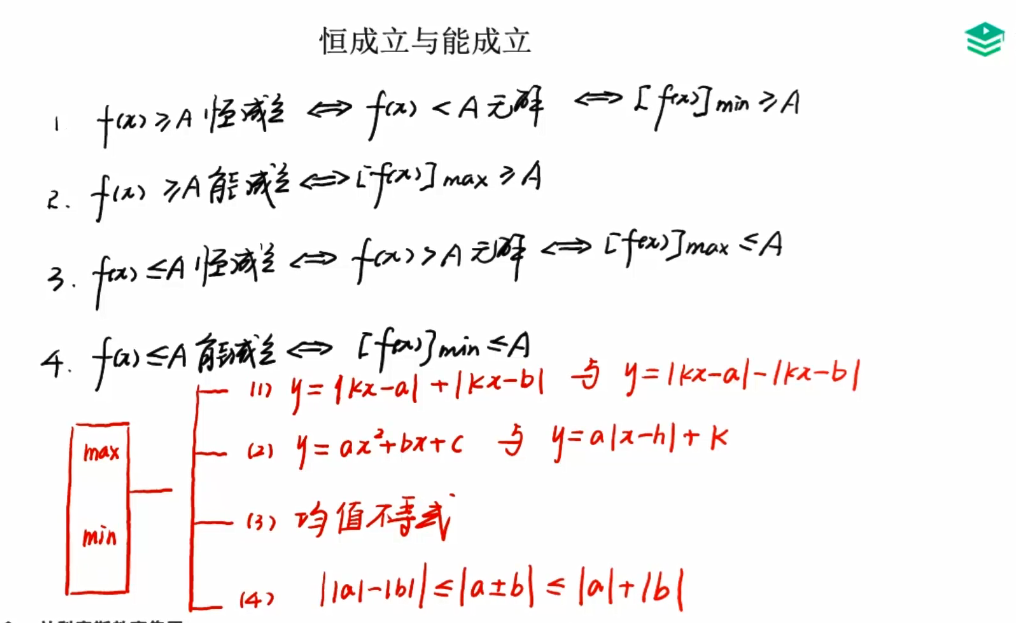 恒成立与能成立
1 f(x)≥A 恒成立 ⟺ f(x)<A 无解 ⟺ [f(x)]min≥A
2. f(x)≥A 能成立 ⟺ [f(x)]max≥A
3. f(x)≤A 恒成立 ⟺ f(x)>A 无解 ⟺ [f(x)]max≤A
4. f(x)≤A 能成立 ⟺ [f(x)]min≤A
(1) y=|kx-a|+|kx-b| 与 y=|kx-a|-|kx-b|
max
(2) y=ax²+bx+c 与 y=a|x-h|+k
(3) 均值不等式
min
(4) ||a|-|b||≤|a±b|≤|a|+|b|